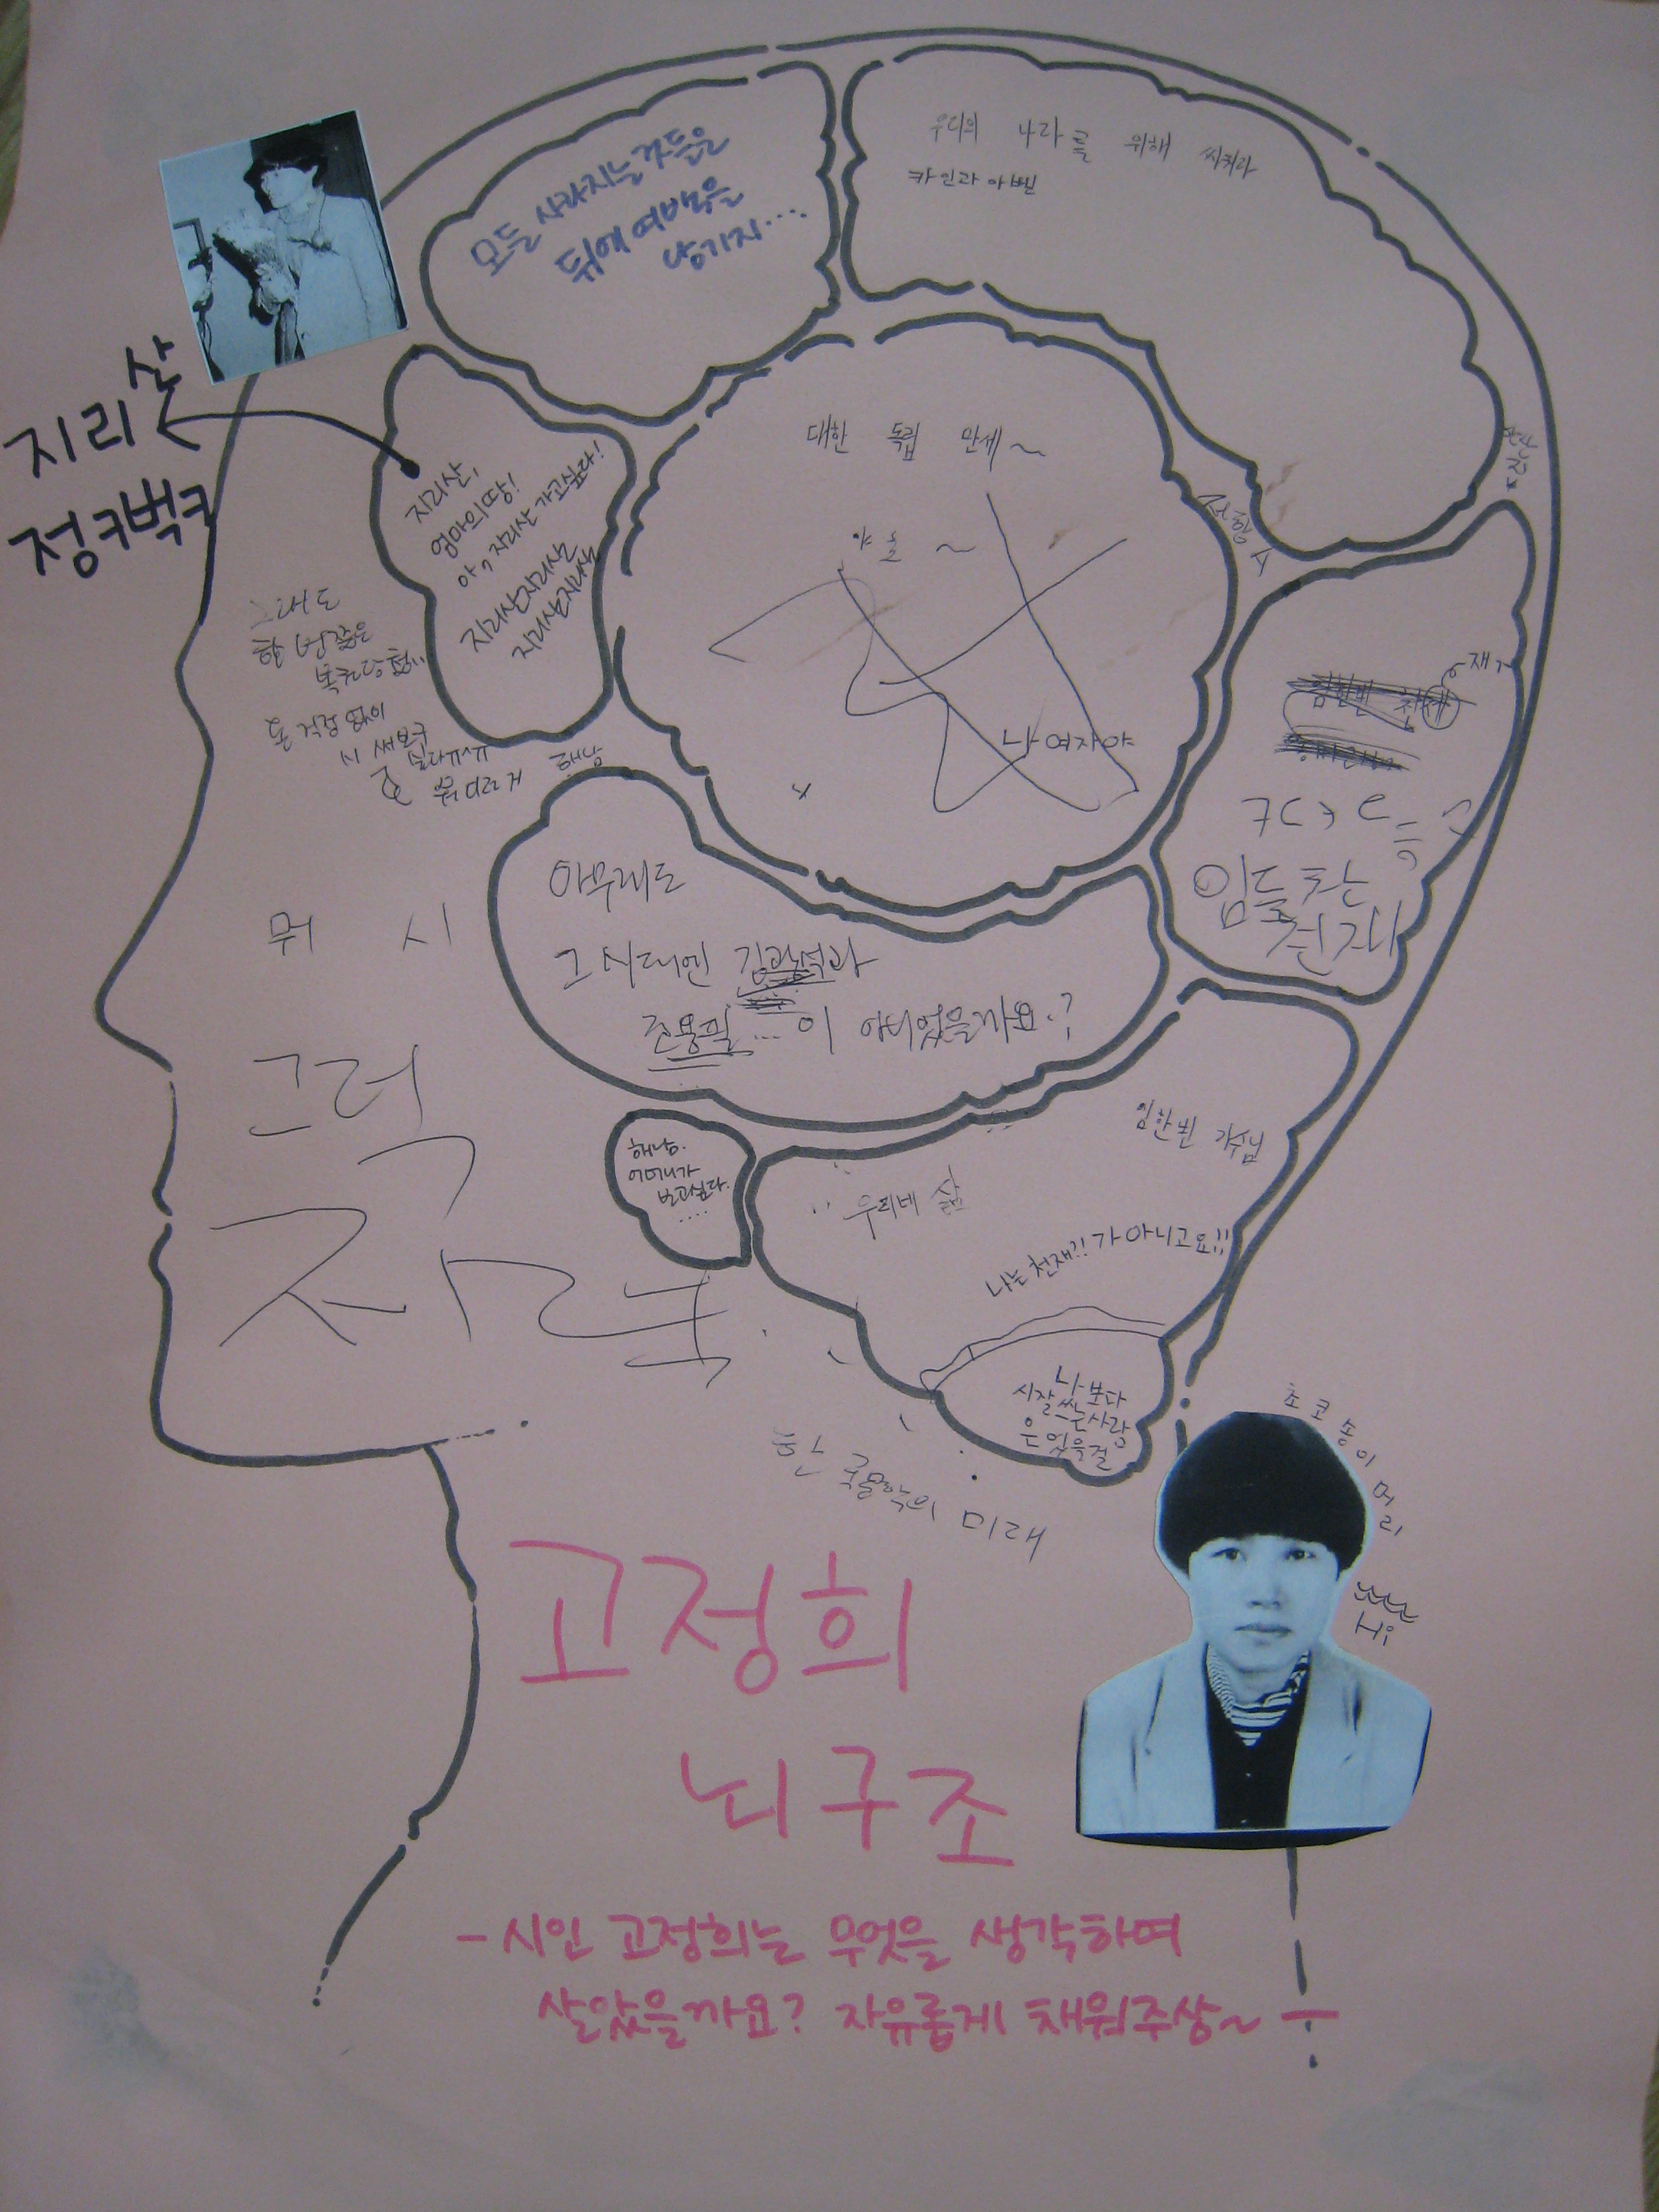 모든 사라지는 것들은
뒤에 여백을
남기지....
우리의 나라를 위해 싸워라
카인과 아벨
지리산
정ㅋ벅ㅋ
지리산,
엄마의 땅!
아, 지리산 가고싶다!
지리산지리산
지리산지리산
대한 독립 만세~
야호~
나 여자야
그래도
한 번쯤은
복권당첨..
돈 걱정 없이
시 써보구
싶다ㅠㅅㅠ
해남
임한빈 천재
임들찬
천재
아무래도
그 시대엔 김광석과
조용필...이 아니었을까요.?
뭐 시
그럭
해남.
어머니가
보고싶다.
....
임한빈 가수님
우리네 삶
나는 천재?! 가 아니고요!!
나보다
시잘쓰는사람
은 없을걸
한국문학의 미래
초코송이머리
Hi
고정희
뇌구조
- 시인 고정희는 무엇을 생각하며
살았을까요? 자유롭게 채워주삼~ -